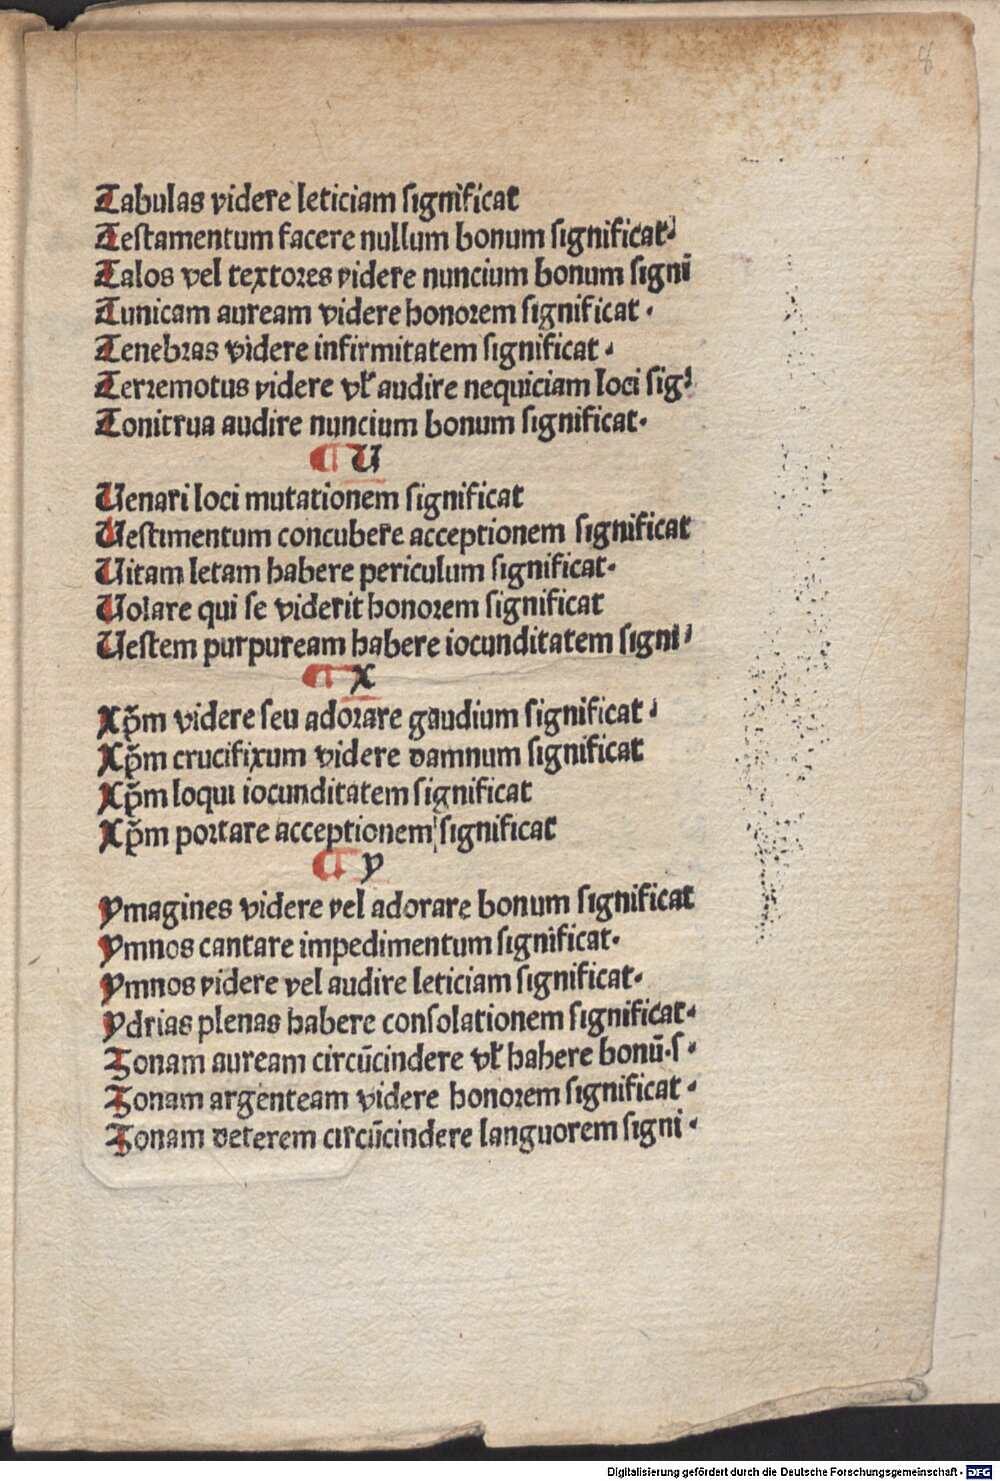 8
Tabulas videre leticiam significat
Testamentum facere nullum bonum significat
Talos vel textores videre nuncium bonum signi̅
Tunicam auream videre honorem significat .
Tenebras videre infirmitatem significat .
Terremotus videre vł audire nequiciam loci sig
Tonitrua audire nuncium bonum significat.
¶ U
Uenari loci mutationem significat
Uestimentum concubere acceptionem significat
Uitam letam habere periculum significat.
Uolare qui se viderit honorem significat
Uestem purpuream habere iocunditatem signi
¶ X
Xp̅m videre seu adorare gaudium significat .
Xp̅m crucifixum videre damnum significat
Xp̅m loqui iocunditatem significat
Xp̅m portare acceptionem significat
¶ y
ymagines videre vel adorare bonum significat
ymnos cantare impedimentum significat.
ymnos videre vel audire leticiam significat.
ydrias plenas habere consolationem significat.
Zonam auream circūcindere vł habere bonū.s .
Zonam argenteam videre honorem significat .
Zonam veterem circūcindere languorem signi .
Digitalisierung gefördert durch die Deutsche Forschungsgemeinschaft - DFG